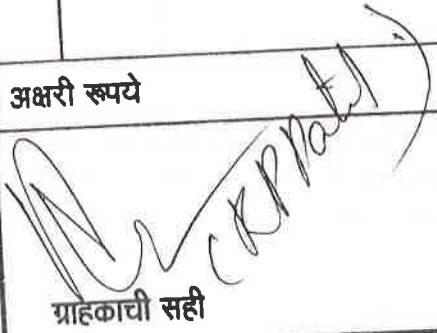 अक्षरी रूपये
(KP Patil)
ग्राहकाची सही